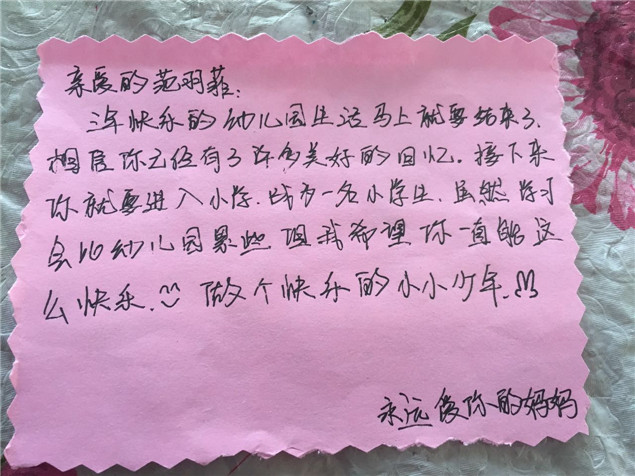 亲爱的范羽菲:
三年快乐的幼儿园生活马上就要结束了,
相信你已经有了许多美好的回忆。接下来
你就要进入小学,成为一名小学生,虽然学习
会比幼儿园累些但我希望你一直能这
么快乐. 做个快乐的小小少年.
永远爱你的妈妈